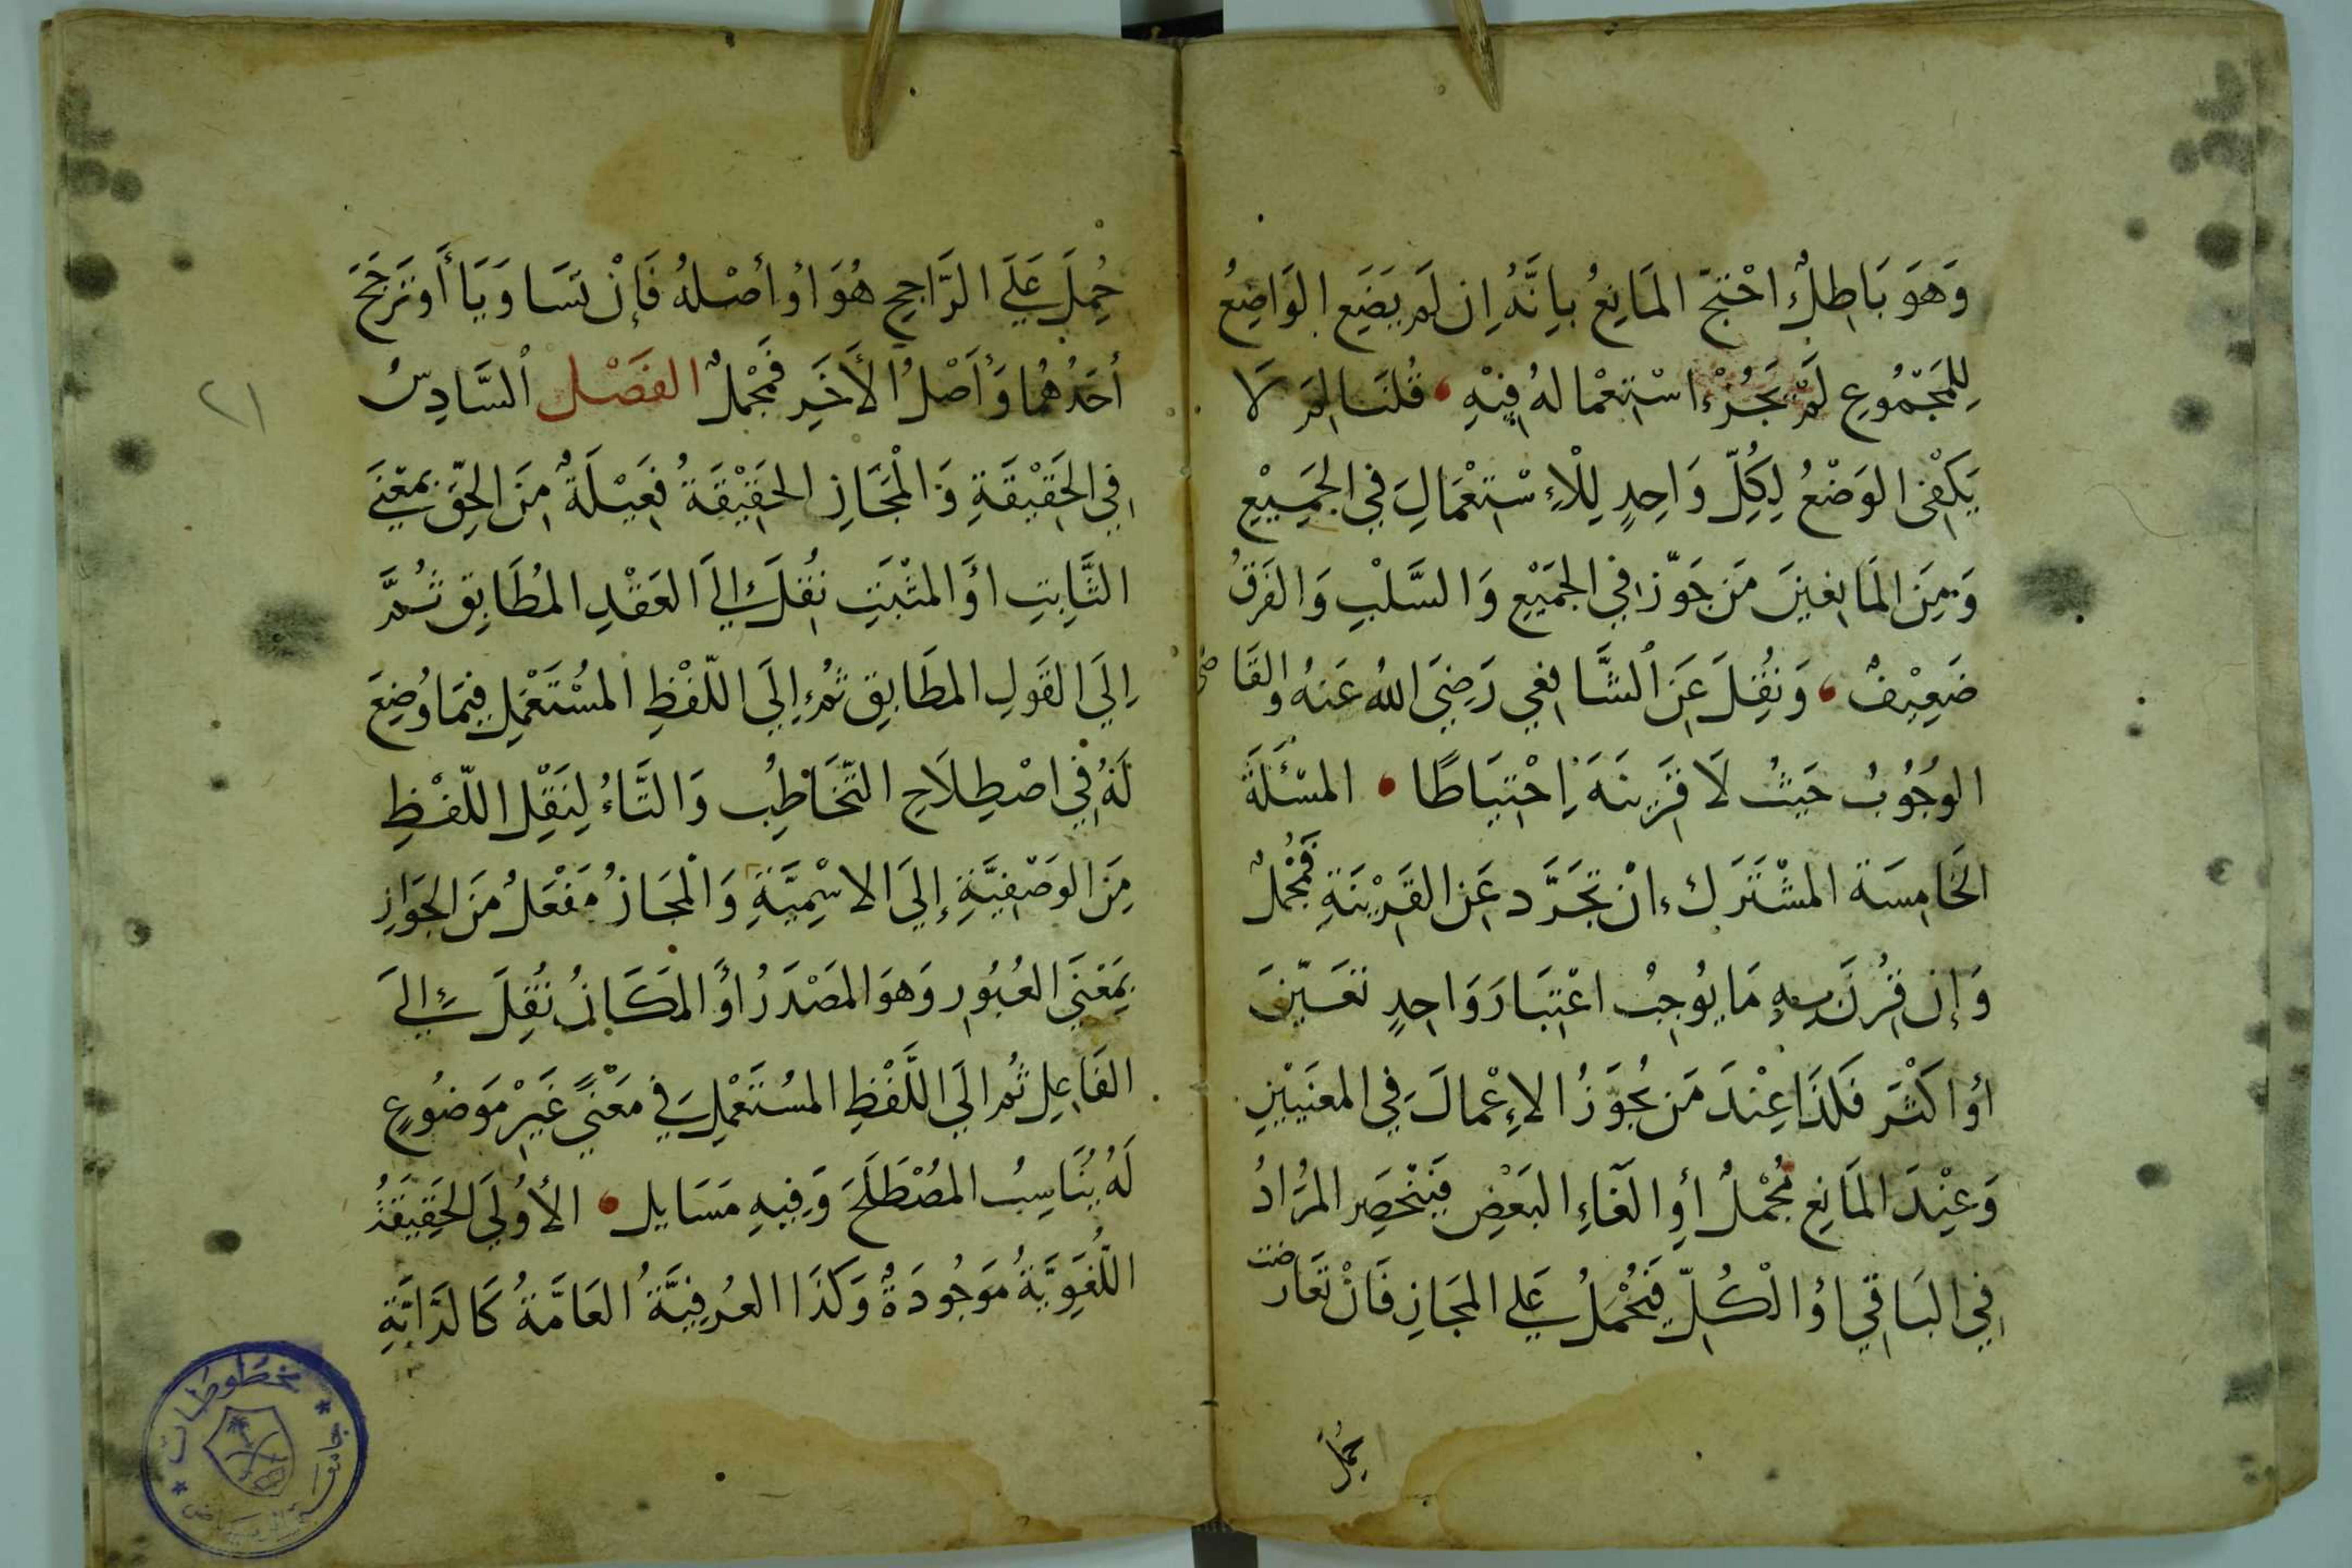 وَهَوَ بَاطِلٌ احْتَجّ المَانِعُ بِانَّهُ اِن لَم يَضَعِ الوَاضِعُ
لِلمَجْمُوعِ لَمْ يَجُزْ اسْتِعْمالهُ فِيْهِ قُلنَا لِمَ لَا
يَكفِى الوَضْعُ لِكُلِّ وَاحِدٍ لِلْاِسْتِعْمَالِ فِي الجَمِيْعِ
وَمِنَ المَانِعِيْنَ مَن جَوّز فِي الجَمْعِ وَالسَّلْبِ وَالفَرقُ
ضَعِيْفٌ وَنُقِلَ عَنِ الشَّافِعِي رَضِيَ اللهُ عَنهُ والقَاضى
الوُجُوبُ حَيثُ لَا قَرِينَةَ اِحْتِيَاطًا المسْئَلَةَ
الخَامِسَة المشْتَرَك اِنْ تجَرَّد عَنِ القَرِيْنَةِ فَمُجْملٌ
وَإِن قُرِنَ بِهِ مَا يُوجِبُ اعْتِبَارَ وَاحِدٍ تعَيّنَ
أوْ اكَثَر فَكذَا عِنْدَ مَن يُجوّزُ الاِعْمالَ فِي المعنَيَيْنِ
وَعِنْدَ المَانِعِ مُجْملٌ أوِ الغَاءِ البَعْضِ فَيَنْحَصِر المرَادُ
فِي البَاقِي اوُ الْكُلِّ فَيُحْمَلُ عَلي المجَازِ فَانْ تعَارضت
حُمِلَ
حُمِلَ عَلَي الرَّاجِحِ هُوَ اوْ أصْلهُ فَإنْ تَسَاوَيَا أَو تَرَجَّحَ
أحَدُهُما وَأَصْلُ الأَخَرِ فَمجْملٌ الفَصْل السَّادِسُ
فِي الحَقِيْقَةِ وَالْمَجَازِ الحَقِيْقَةُ فَعِيْلَةٌ مِنَ الحَقِّ بِمَعْنَي
الثَّابِتِ أوَ المثْبَتِ نُقِلَ إِلَي العَقْدِ المُطَابِقِ ثُمَّ
اِلَي القَولِ المطَابِقِ ثمُ إِلَي اللّفْظِ المسْتَعْمَلِ فِيمَا وُضِعَ
لَهُ فِي اصْطِلَاحِ التّخَاطُبِ وَالتَّاءُ لِنَقْلِ اللّفْظِ
مِنَ الوَصْفِيَّةِ إِلَيَ الاسْمِيَّةِ وَالْمجَازُ مَفْعَلٌ مَن الجَوَازِ
بِمَعْنَي العُبُورِ وَهوَ المَصْدَرُ اوْ المَكَانُ نُقِلَ إِلَي
الفَاعِلِ ثُم الَي اللَّفْظِ المسُتَعْمَلِ فِي مَعْنًي غَيْرِ مَوضُوعٍ
لَهُ يُنَاسِبُ المصْطَلَحَ وَفِيهِ مَسَايل الأُولَي الحَقِيقَةُ
اللّغُوَيَّةُ مَوجُودَةٌ وَكَذَا العرُفِيَّةُ العَامَّةُ كَالدَّابَّةِ
٢١
مخطوطات
جامعة الرياض